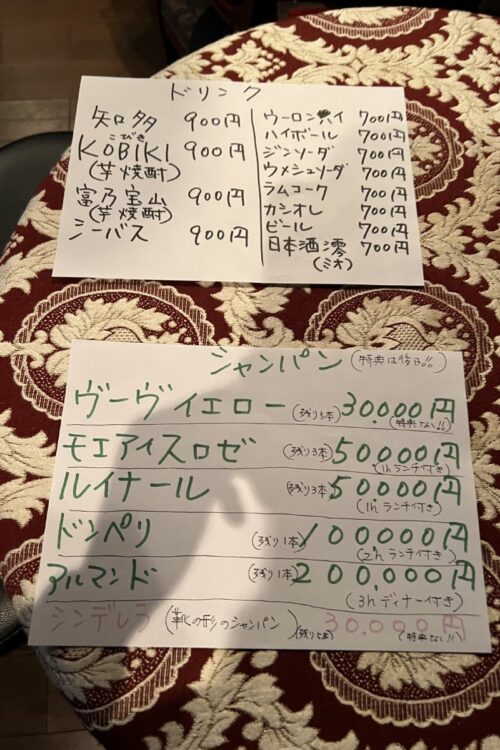 ドリンク
知多 900円
こびき
KOBIKI 900円
(芋焼酎)
富乃宝山 900円
(芋焼酎)
シーバス 900円
ウーロンハイ 700円
ハイボール 700円
ジンソーダ 700円
ウメシュソーダ 700円
ラムコーク 700円
カシオレ 700円
ビール 700円
日本酒 澪 700円
(ミオ)
シャンパン (特典は後日!!)
ヴーヴイエロー (残り5本) 30.000円
(特典なし!!)
モエアイスロゼ (残り3本) 50000円
(1hランチ付き)
ルイナール (残り3本) 50000円
(1hランチ付き)
ドンペリ (残り1本) 100000円
(2hランチ付き)
アルマンド (残り1本) 200.000円
(3hディナー付き)
シンデレラ (靴の形のシャンパン) (残り5本) 30.000円
(特典なし!!)